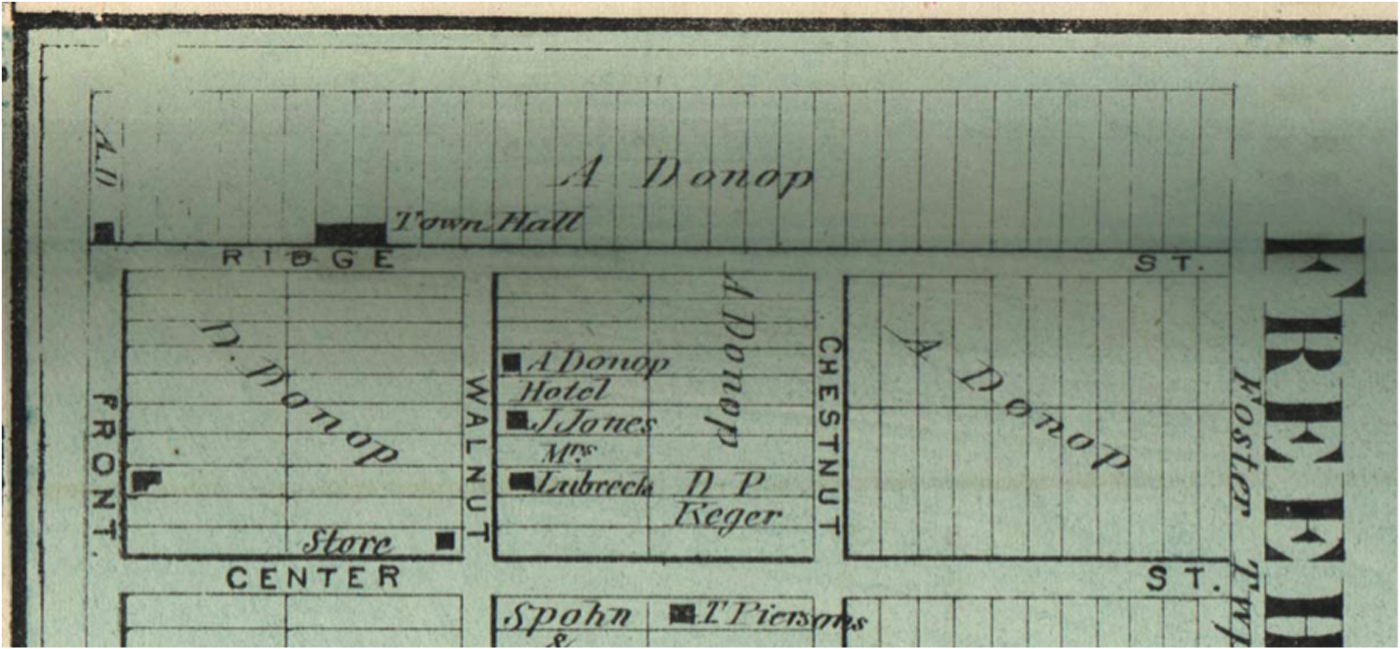 A.D
A Donop
Town Hall
RIDGE ST.
D. Donop
A Donop
Hotel
J Jones
Mrs
A Donop
D P
Keger
CHESTNUT
A Donop
FRONT.
WALNUT
Store
CENTER ST.
Spohn
&
T Piersons
Foster Twp
FREED